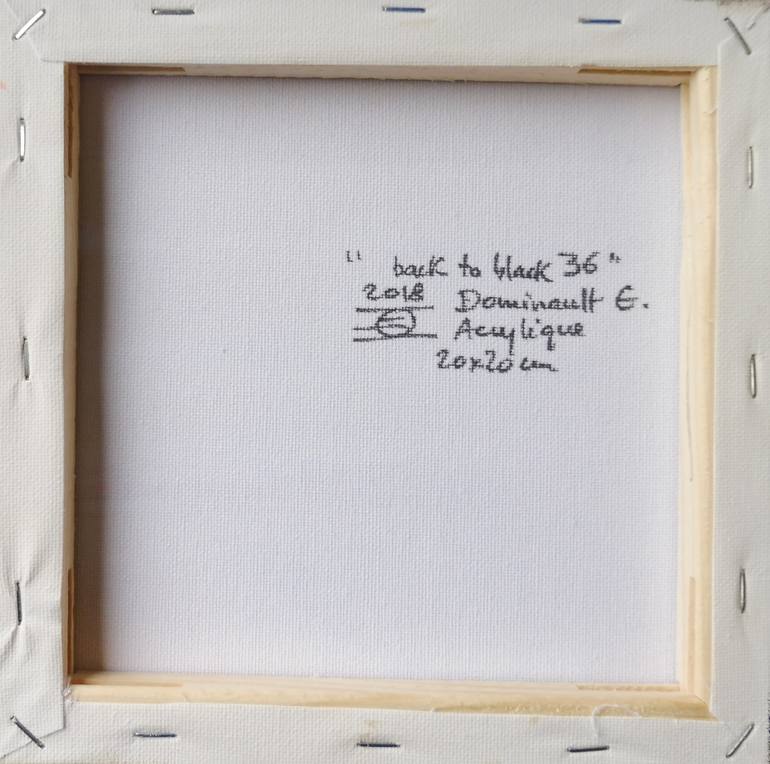 " back to black 36 "
2018 Dominault E.
Acrylique
20x20 cm